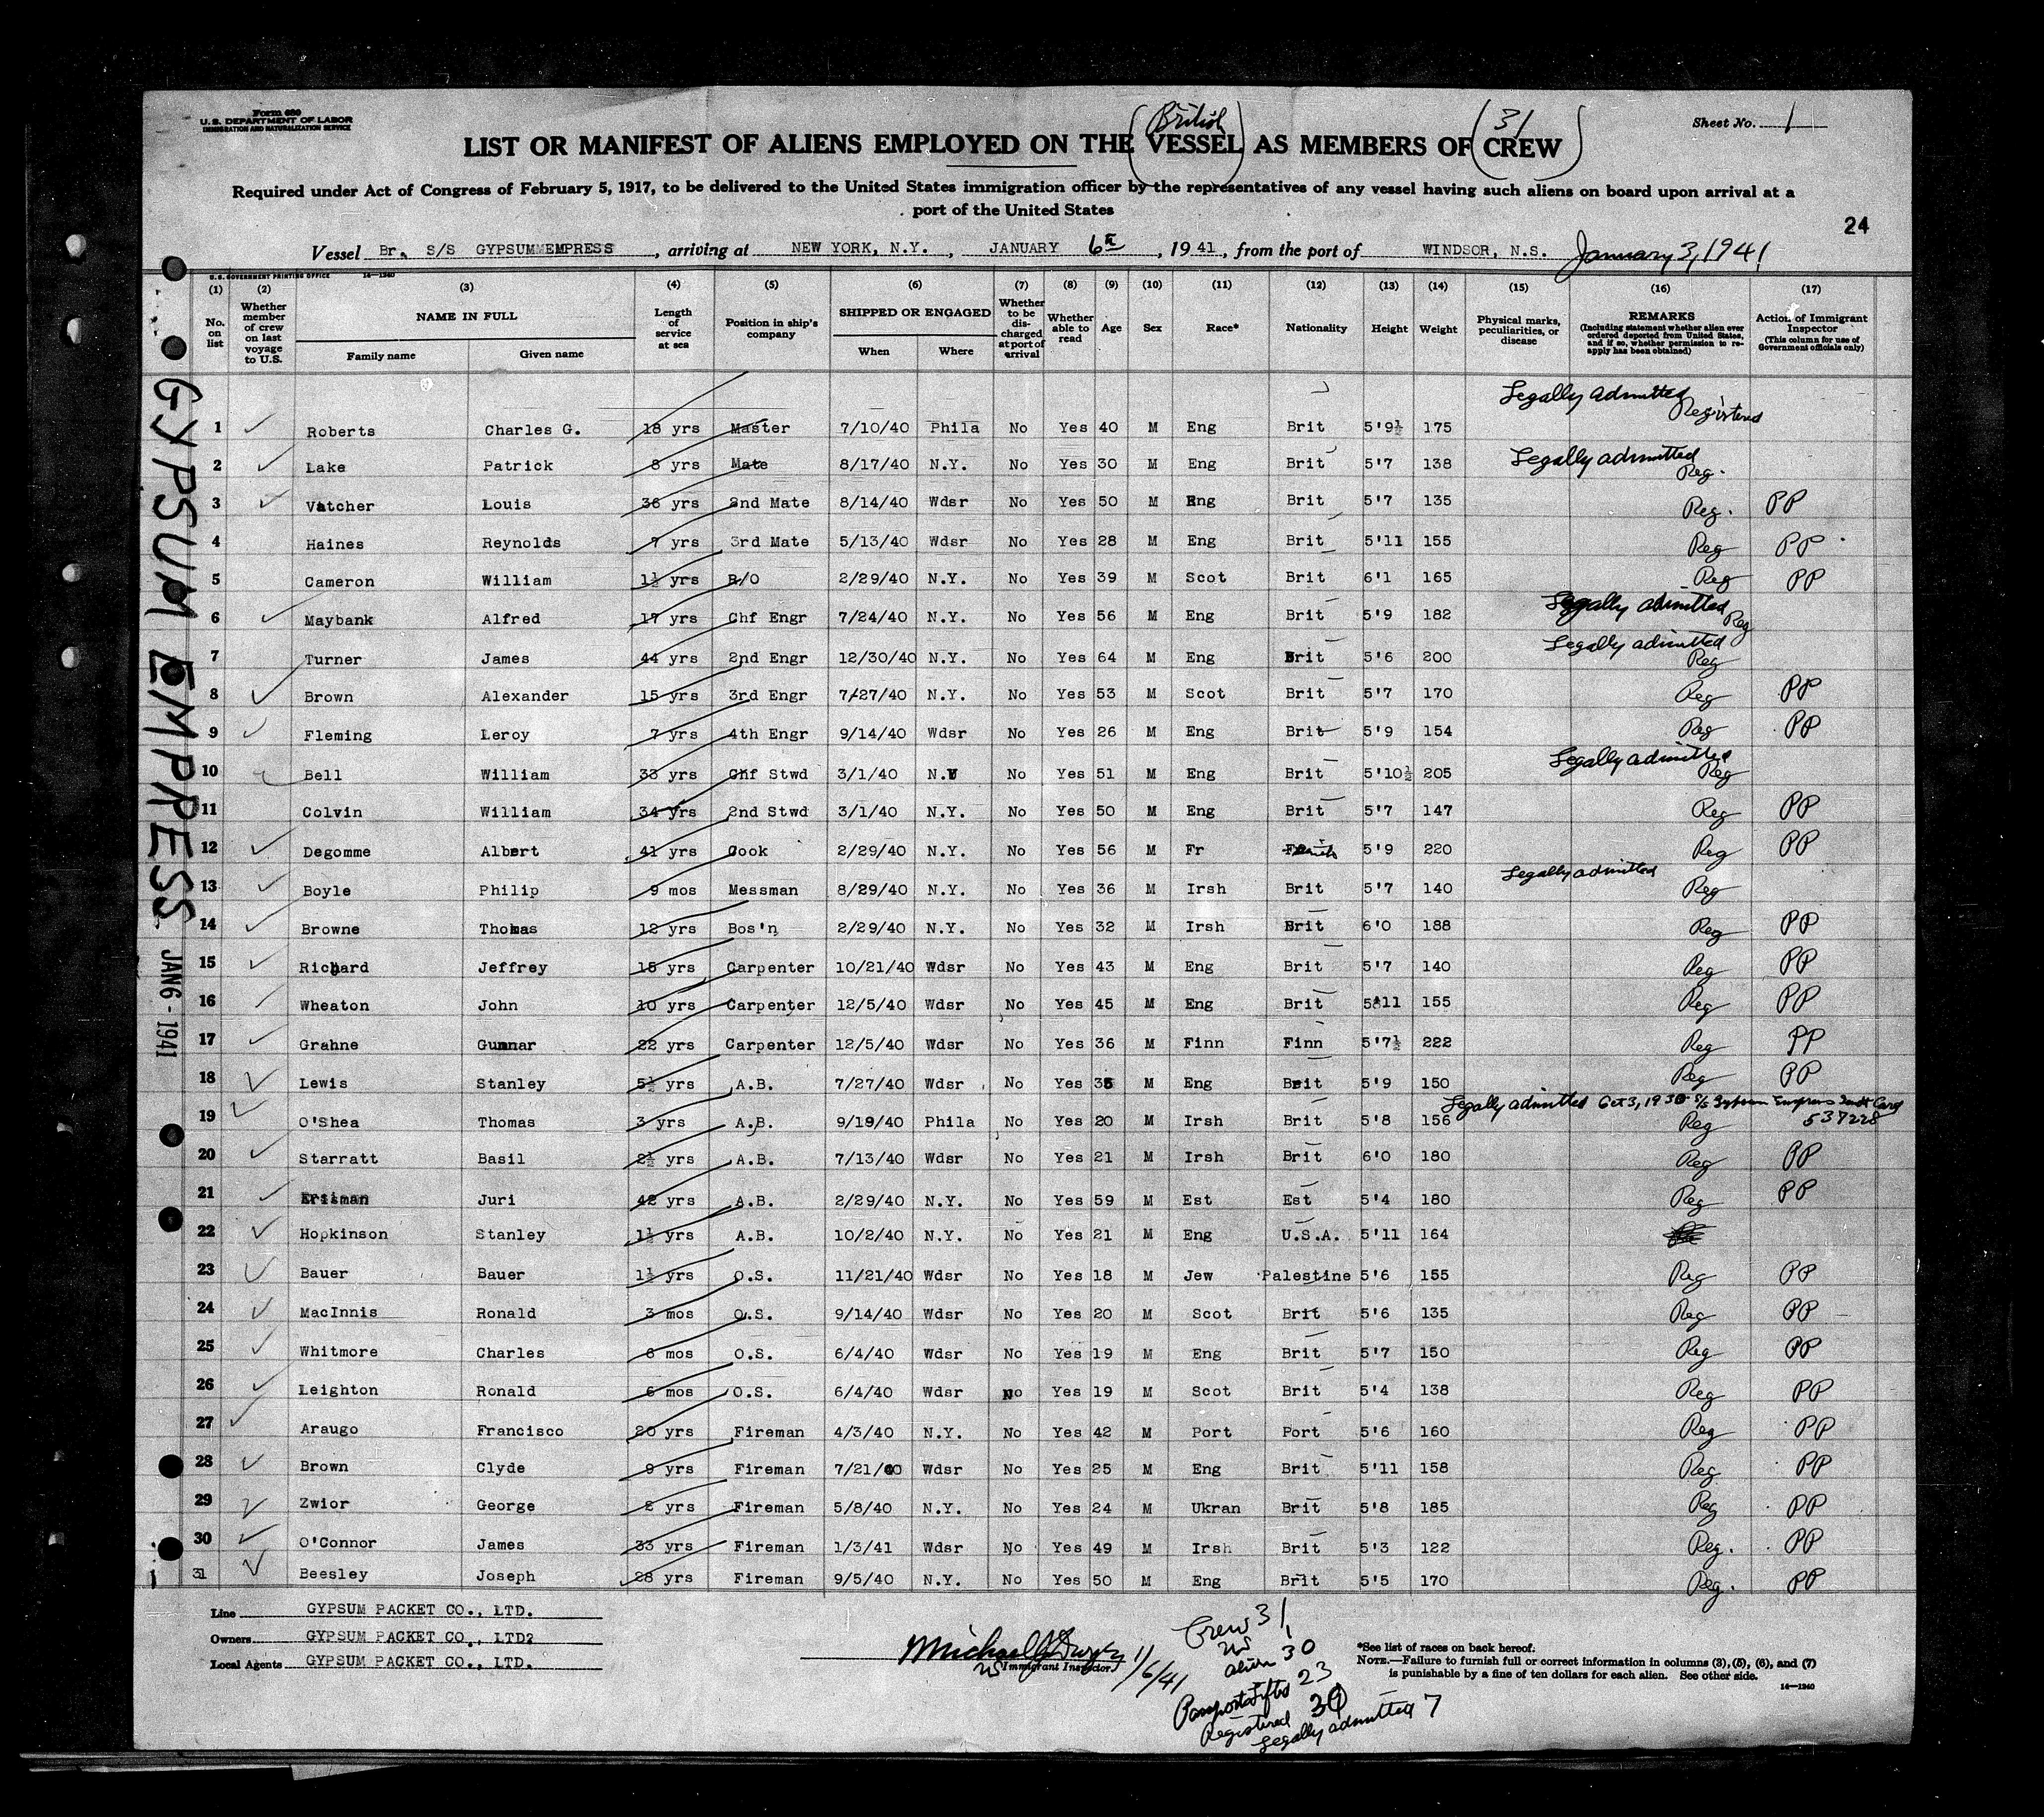 Form 680
U. S. DEPARTMENT OF LABOR
IMMIGRATION AND NATURALIZATION SERVICE
Sheet No. 1
British
31
LIST OR MANIFEST OF ALIENS EMPLOYED ON THE VESSEL AS MEMBERS OF CREW
Required under Act of Congress of February 5, 1917, to be delivered to the United States immigration officer by the representatives of any vessel having such aliens on board upon arrival at a
port of the United States
24
Vessel Br. S/S GYPSUM EMPRESS, arriving at NEW YORK, N.Y. JANUARY 6th, 1941, from the port of WINDSOR, N.S. January 3, 1941
U.S. GOVERNMENT PRINTING OFFICE 14—1240
(1) (2) (3) (4) (5) (6) (7) (8) (9) (10) (11) (12) (13) (14) (15) (16) (17)
No. on list
Whether member of crew on last voyage to U.S.
NAME IN FULL
Family name Given name
Length of service at sea
Position in ship's company
SHIPPED OR ENGAGED
When Where
Whether to be discharged at port of arrival
Whether able to read
Age
Sex
Race*
Nationality
Height
Weight
Physical marks, peculiarities, or disease
REMARKS
(Including statement whether alien ever ordered deported from United States, and if so, whether permission to reapply has been obtained)
Action of Immigrant Inspector
(This column for use of Government officials only)
GYPSUM EMPRESS
JAN 6 - 1941
1 Roberts Charles G. 18 yrs Master 7/10/40 Phila No Yes 40 M Eng Brit 5'9½ 175 Legally admitted Registered
2 Lake Patrick 8 yrs Mate 8/17/40 N.Y. No Yes 30 M Eng Brit 5'7 138 Legally admitted Reg.
3 Vatcher Louis 36 yrs 2nd Mate 8/14/40 Wdsr No Yes 50 M Eng Brit 5'7 135 Reg. PP
4 Haines Reynolds 7 yrs 3rd Mate 5/13/40 Wdsr No Yes 28 M Eng Brit 5'11 155 Reg PP
5 Cameron William 1½ yrs R/O 2/29/40 N.Y. No Yes 39 M Scot Brit 6'1 165 Reg PP
6 Maybank Alfred 17 yrs Chf Engr 7/24/40 N.Y. No Yes 56 M Eng Brit 5'9 182 Legally admitted Reg
7 Turner James 44 yrs 2nd Engr 12/30/40 N.Y. No Yes 64 M Eng Brit 5'6 200 Legally admitted Reg
8 Brown Alexander 15 yrs 3rd Engr 7/27/40 N.Y. No Yes 53 M Scot Brit 5'7 170 Reg PP
9 Fleming Leroy 7 yrs 4th Engr 9/14/40 Wdsr No Yes 26 M Eng Brit 5'9 154 Reg PP
10 Bell William 33 yrs Chf Stwd 3/1/40 N.Y No Yes 51 M Eng Brit 5'10½ 205 Legally admitted Reg
11 Colvin William 34 yrs 2nd Stwd 3/1/40 N.Y. No Yes 50 M Eng Brit 5'7 147 Reg PP
12 Degomme Albert 41 yrs Cook 2/29/40 N.Y. No Yes 56 M Fr 5'9 220 Reg PP
13 Boyle Philip 9 mos Messman 8/29/40 N.Y. No Yes 36 M Irsh Brit 5'7 140 Legally admitted Reg
14 Browne Thomas 12 yrs Bos'n 2/29/40 N.Y. No Yes 32 M Irsh Brit 6'0 188 Reg PP
15 Richard Jeffrey 15 yrs Carpenter 10/21/40 Wdsr No Yes 43 M Eng Brit 5'7 140 Reg PP
16 Wheaton John 10 yrs Carpenter 12/5/40 Wdsr No Yes 45 M Eng Brit 5'11 155 Reg PP
17 Grahne Gunnar 22 yrs Carpenter 12/5/40 Wdsr No Yes 36 M Finn Finn 5'7½ 222 Reg PP
18 Lewis Stanley 5½ yrs A.B. 7/27/40 Wdsr No Yes M Eng Brit 5'9 150 Reg PP
19 O'Shea Thomas 3 yrs A.B. 9/19/40 Phila No Yes 20 M Irsh Brit 5'8 156 Legally admitted Oct 3, 1930 S/S Gypsum Empress Card 537228 Reg
20 Starratt Basil 2½ yrs A.B. 7/13/40 Wdsr No Yes 21 M Irsh Brit 6'0 180 Reg PP
21 Juri 42 yrs A.B. 2/29/40 N.Y. No Yes 59 M Est Est 5'4 180 Reg PP
22 Hopkinson Stanley 1½ yrs A.B. 10/2/40 N.Y. No Yes 21 M Eng U.S.A. 5'11 164
23 Bauer Bauer 1½ yrs O.S. 11/21/40 Wdsr No Yes 18 M Jew Palestine 5'6 155 Reg PP
24 MacInnis Ronald 3 mos O.S. 9/14/40 Wdsr No Yes 20 M Scot Brit 5'6 135 Reg PP
25 Whitmore Charles 6 mos O.S. 6/4/40 Wdsr No Yes 19 M Eng Brit 5'7 150 Reg PP
26 Leighton Ronald 6 mos O.S. 6/4/40 Wdsr No Yes 19 M Scot Brit 5'4 138 Reg PP
27 Araugo Francisco 20 yrs Fireman 4/3/40 N.Y. No Yes 42 M Port Port 5'6 160 Reg PP
28 Brown Clyde 9 yrs Fireman 7/21/40 Wdsr No Yes 25 M Eng Brit 5'11 158 Reg PP
29 Zwior George 2 yrs Fireman 5/8/40 N.Y. No Yes 24 M Ukran Brit 5'8 185 Reg PP
30 O'Connor James 33 yrs Fireman 1/3/41 Wdsr No Yes 49 M Irsh Brit 5'3 122 Reg. PP
31 Beesley Joseph 28 yrs Fireman 9/5/40 N.Y. No Yes 50 M Eng Brit 5'5 170 Reg. PP
Line GYPSUM PACKET CO., LTD.
Owners GYPSUM PACKET CO., LTD?
Local Agents GYPSUM PACKET CO., LTD.
Michael 1/6/41
Immigrant Inspector
Crew 31
US 1
alien 30
Passports lifted 23
Registered 30
Legally admitted 7
*See list of races on back hereof.
NOTE.—Failure to furnish full or correct information in columns (3), (5), (6), and (7)
is punishable by a fine of ten dollars for each alien. See other side.
14—1240